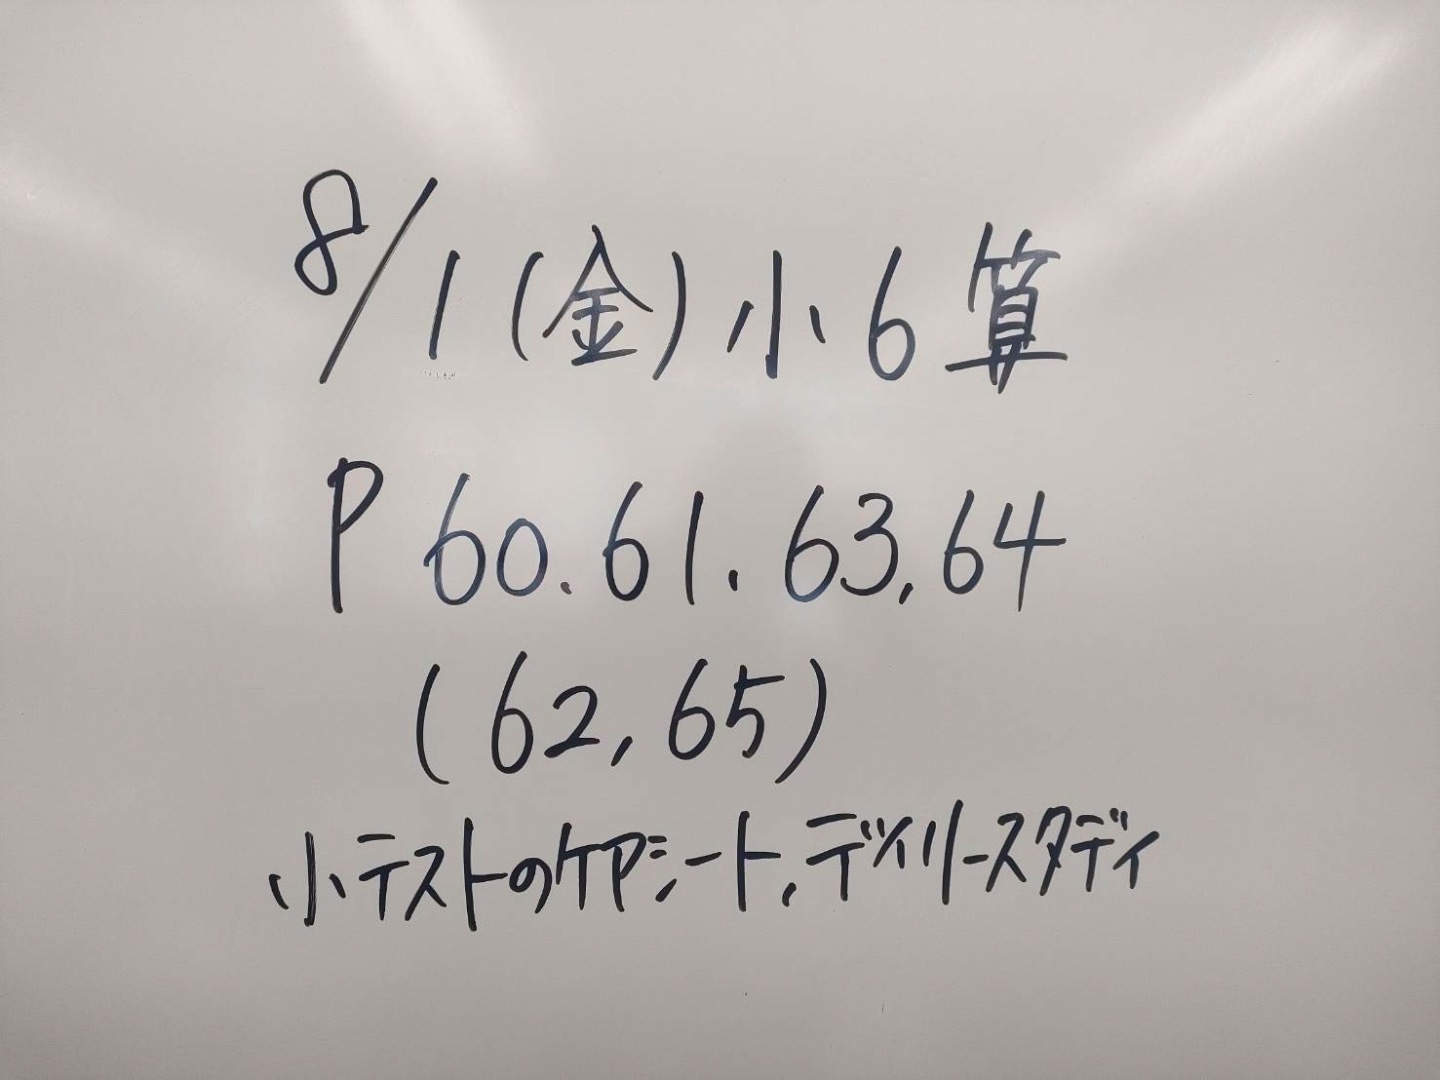 8/1(金)小6算
P 60.61.63,64
(62,65)
小テストのケアシート,デイリースタディ